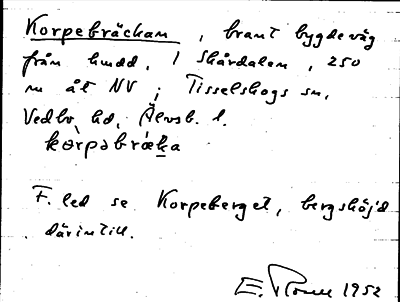 Korpebräckan, brant bygdeväg
från landsv. i Skårdalen, 250
m åt NV; Tisselskogs sn,
Vedbo hd, Älvsb. l.
kɔrpəbræka
F. led se Korpeberget, bergshöjd
därintill.
E. 1952